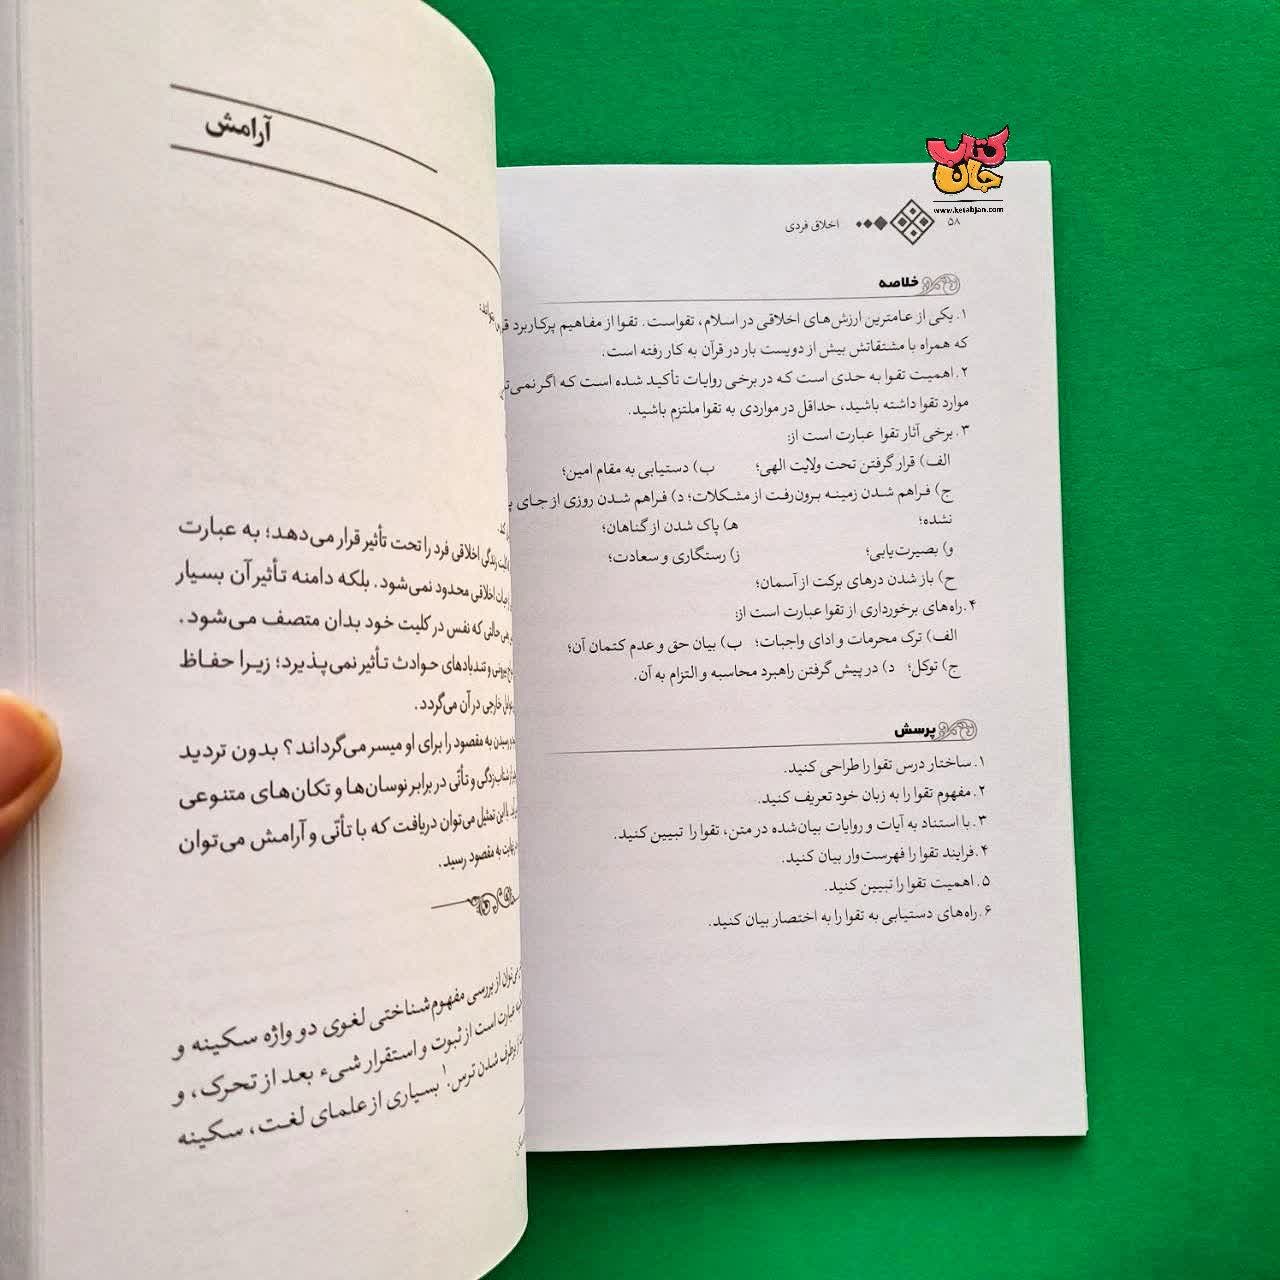 کتاب جان
www.ketabjan.com
۵۸ اخلاق فردی
خلاصه
۱. یکی از عامترین ارزش‌های اخلاقی در اسلام، تقواست. تقوا از مفاهیم پرکاربرد
که همراه با مشتقاتش بیش از دویست بار در قرآن به کار رفته است.
۲. اهمیت تقوا به حدی است که در برخی روایات تأکید شده است که اگر
موارد تقوا داشته باشید، حداقل در مواردی به تقوا ملتزم باشید.
۳. برخی آثار تقوا عبارت است از:
الف) قرار گرفتن تحت ولایت الهی؛ ب) دستیابی به مقام امین؛
ج) فراهم شدن زمینه برون‌رفت از مشکلات؛ د) فراهم شدن روزی از جای
نشده؛ هـ) پاک شدن از گناهان؛
و) بصیرت‌یابی؛ ز) رستگاری و سعادت؛
ح) باز شدن درهای برکت از آسمان؛
۴. راه‌های برخورداری از تقوا عبارت است از:
الف) ترک محرمات و ادای واجبات؛ ب) بیان حق و عدم کتمان آن؛
ج) توکل؛ د) در پیش گرفتن راهبرد محاسبه و التزام به آن.
پرسش
۱. ساختار درس تقوا را طراحی کنید.
۲. مفهوم تقوا را به زبان خود تعریف کنید.
۳. با استناد به آیات و روایات بیان‌شده در متن، تقوا را تبیین کنید.
۴. فرایند تقوا را فهرست‌وار بیان کنید.
۵. اهمیت تقوا را تبیین کنید.
۶. راه‌های دستیابی به تقوا را به اختصار بیان کنید.
آرامش
زندگی اخلاقی فرد را تحت تأثیر قرار می‌دهد؛ به عبارت
اخلاقی محدود نمی‌شود. بلکه دامنه تأثیر آن بسیار
حالتی که نفس در کلیت خود بدان متصف می‌شود.
و تندبادهای حوادث تأثیر نمی‌پذیرد؛ زیرا حفاظ
خارجی در آن می‌گردد.
رسیدن به مقصود را برای او میسر می‌گرداند؟ بدون تردید
شتاب‌زدگی و تأنّی در برابر نوسان‌ها و تکان‌های متنوعی
با این تمثیل می‌توان دریافت که با تأنّی و آرامش می‌توان
به مقصود رسید.
می‌توان از بررسی مفهوم‌شناختی لغوی دو واژه سکینه و
عبارت است از ثبوت و استقرار شیء بعد از تحرک، و
برطرف شدن ترس! بسیاری از علمای لغت، سکینه